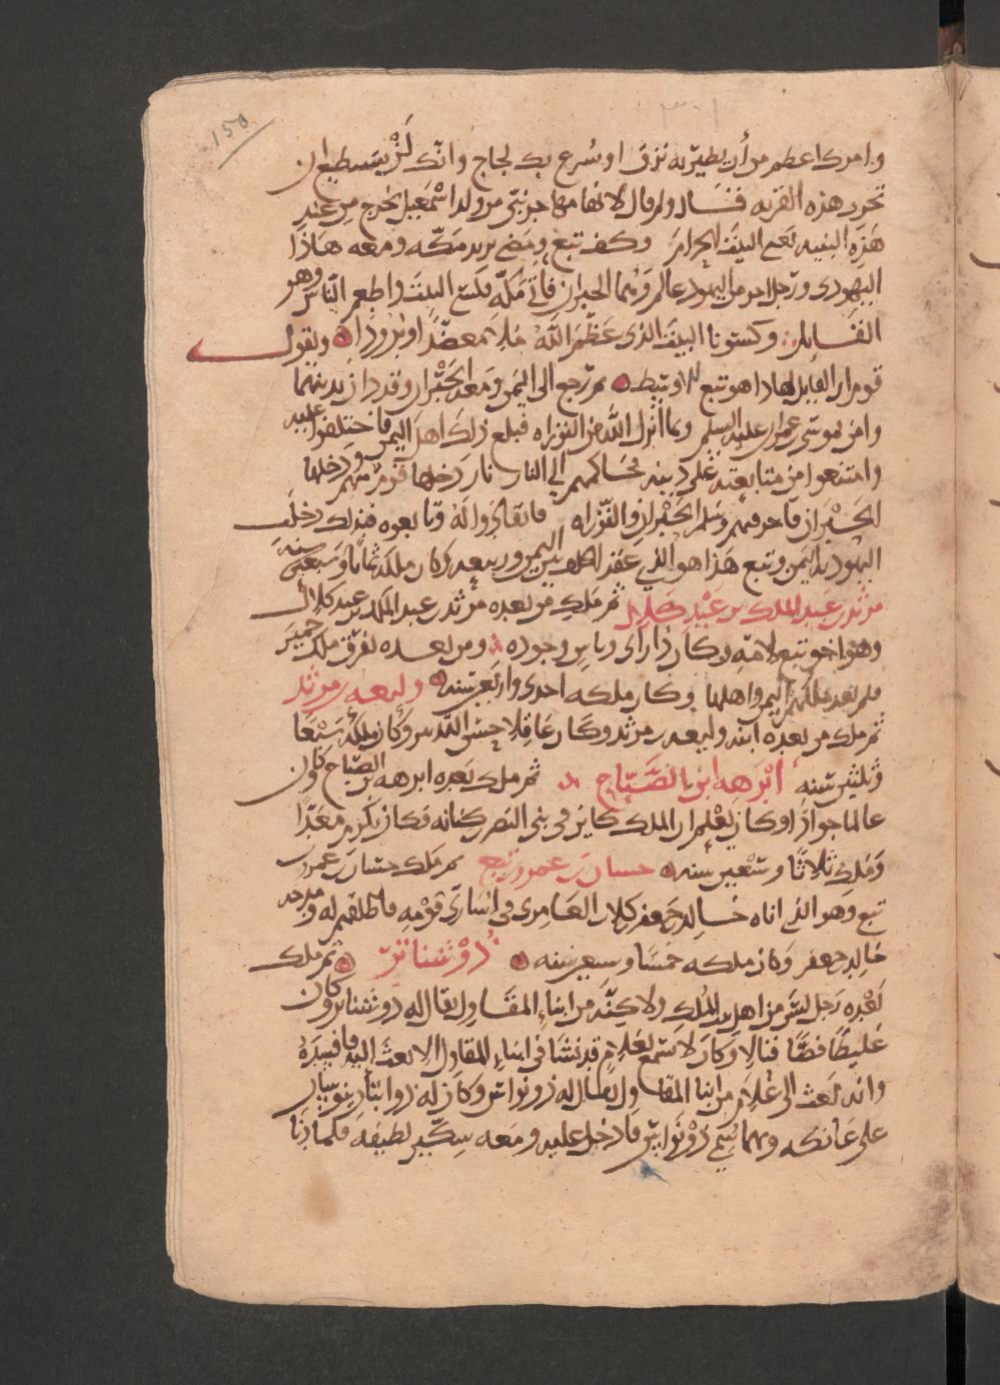 150
وامرك اعظم من أن يطير به نزق او يسرع بك لجاج وانك لن تستطيع ان
تخرب هذه القريه فسال ولم قال لانها مهاجر نبي من ولد اسمعيل يخرج من عند
هذه البنيه يعني البيت الحرام وكف تبع ومضى يريد مكه ومعه هاذا
اليهودى ورجل اخر من اليهود عالم وهما الحبران فاتى مكه فكسى البيت واطعم الناس وهو
القايل وكسونا البيت الذي عظم الله ملا معضدا وبرودا ويقول
قوم ان القايل لهاذا هو تبع الاوسط ثم رجع الى اليمن ومعه الحبران وقد دان بدينهما
وامن بموسى بن عمران عليه السلم وبما انزل الله في التوراه فبلغ ذلك اهل اليمن فاختلفوا عليه
وامتنعوا من متابعته على دينه فحاكمهم الى النار نار دخلها قوم منهم ودخلها
الحبران فاحرقتهم وسلم الحبران والتوراه فانقادوا له وتابعوه فبذلك دخلت
اليهوديه اليمن وتبع هذا هو الذي عقد الحلف بين اليمن وربيعه وكان ملكه ثمانيا وسبعين سنه
مرثد بن عبد الملك بن عبد كلال ثم ملك من بعده مرثد بن عبد الملك بن عبد كلال
وهو اخو تبع لامه وكان ذا راى وباس وجوده ومن بعده تفرق ملك حمير
فلم يعد ملكهم اليمن واهلها وكان ملكه احدى واربعين سنه وليعه بن مرثد
ثم ملك من بعده ابنه وليعه بن مرثد وكان عاقلا حسن التدبير وكان ملكه سبعا
وثلثين سنه ابرهه ابن الصباح ثم ملك بعده ابرهه بن الصباح وكان
عالما جوادا وكان يعلم ان الملك كاين فى بنى النضر بن كنانه فكان يكرم معدا
وملك ثلاثا وسبعين سنه حسان بن عمرو بن تبع ثم ملك حسان بن عمرو بن
تبع وهو الذي اتاه خالد بن جعفر بن كلاب العامرى فى اسارى قومه فاطلقهم له ومدحه
خالد بن جعفر وكان ملكه خمسا وسبعين سنه ذو شناتر ثم ملك
بعده رجل ليس من اهل بيت الملك ولاكنه من ابناء المقاول يقال له ذو شناتر وكان
غليظا فظا قتالا وكان لا يسمع بغلام قد نشا فى ابناء المقاول الا بعث اليه فافسده
وانه بعث الى غلام من ابنا المقاول يقال له ذو نواس وكان له ذوابتان ينوسان
على عاتقه وبهما سمي ذو نواس فادخل عليه ومعه سكين لطيفه فلما دنا